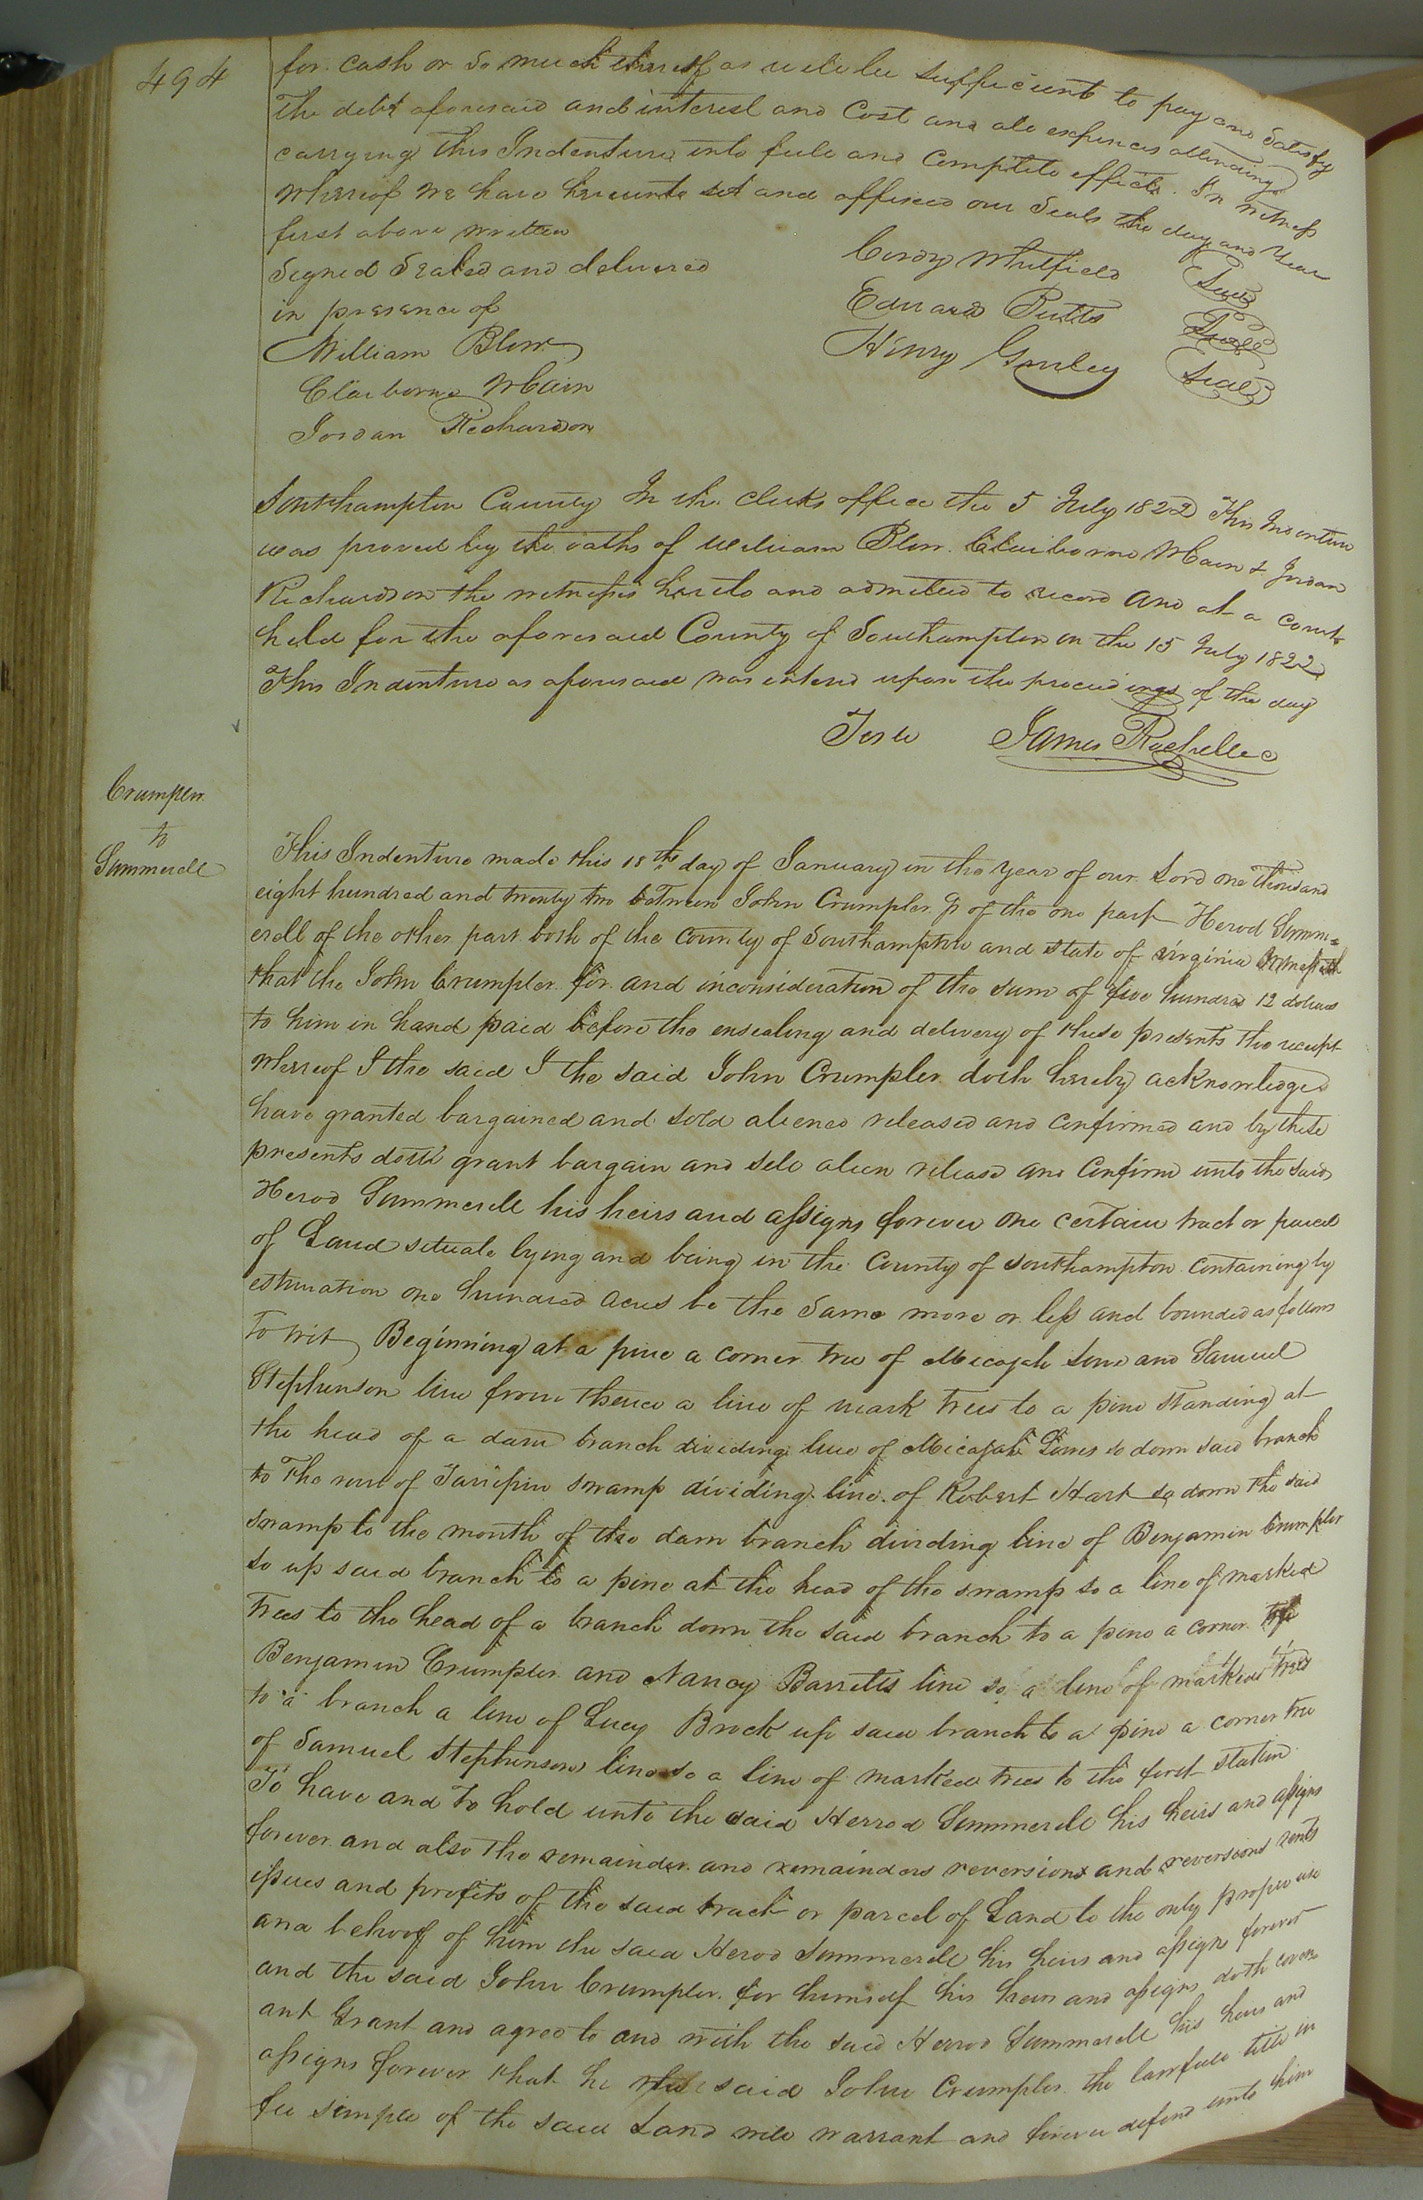 494
for cash or so much thereof as will be sufficient to pay and satisfy
the debt aforesaid and interest and Cost and all expences attending
carrying this Indenture into full and complete effect. In witness
whereof we have hereunto set and affixed our seals the day and year
first above written
Signed Sealed and delivered
in presence of
Whitfield Seal
Edward Butts Seal
Henry Gurley Seal
William Blow
Claiborne McCain
Jordan Richardson
Southampton County In the clerks office the 5 July 1822 This Indenture
was proved by the oaths of William Blow Claiborne & Jordan
Richardson the witnesses hereto and admitted to record and at a court
held for the aforesaid County of Southampton on the 15 July 1822
This Indenture as aforesaid was entered upon the proceedings of the day
Teste James Rochelle C
Crumpler
to
Summerell
This Indenture made this 18th day of January in the year of our Lord one thousand
eight hundred and twenty two between John Crumpler of the one part Herod Summ=
erell of the other part both of the County of Southampton and state of virginia Witnesseth
that the John Crumpler for and inconsideration of the sum of five hundred 12 dollars
to him in hand paid before the ensealing and delivery of these presents the receipt
whereof I the said I the said John Crumpler doth hereby acknowledged
have granted bargained and sold aliened released and confirmed and by these
presents doth grant bargain and sell alien release and confirm unto the said
Herod Summerell his heirs and assigns forever one certain tract or parcel
of Land situate lying and being in the County of Southampton containing by
estimation one hundred acres be the same more or less and bounded as follows
to wit Beginning at a pine a corner tree of Micajah and Samuel
Stephenson line from thence a line of mark trees to a pine standing at
the head of a dam branch dividing line of Micajah so down said branch
to the run of Tarripin swamp dividing line of Robert Hart so down the said
swamp to the mouth of the dam branch dividing line of Benjamin Crumpler
so up said branch to a pine at the head of the swamp so a line of marked
trees to the head of a branch down the said branch to a pine a corner
Benjamin Crumpler and Nancy Barretts line so a line of marked trees
to a branch a line of Lucy Brock up said branch to a pine a corner tree
of Samuel Stephensons line so a line of marked trees to the first station
To have and to hold unto the said Herrod Summerell his heirs and assigns
forever and also the remainder and remainders reversions and reversions rents
issues and profits of the said tract or parcel of Land to the only proper use
and behoof of him the said Herod Summerell his heirs and assigns forever
and the said John Crumpler for himself his heirs and assigns doth coven
ant Grant and agree to and with the said Herrod Summerell his heirs and
assigns forever that he the said John Crumpler the lawfull title in
fee simple of the said Land will warrant and forever defend unto him